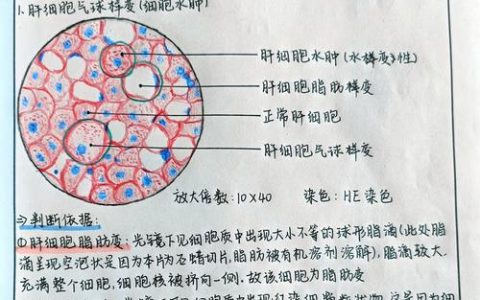 1.肝细胞气球样变(细胞水肿)
肝细胞水肿(水样变)性)
肝细胞脂肪样变
正常肝细胞
肝细胞气球样变
放大倍数:10×40 染色:HE染色
⇒判断依据:
①肝细胞脂肪变:光镜下见细胞质中出现大小不等的球形脂滴(此处脂
滴呈现空泡状是因为本片为石蜡切片,脂肪被有机溶剂溶解),脂滴较大,
充满整个细胞,细胞核被挤向一侧,故该细胞为脂肪变